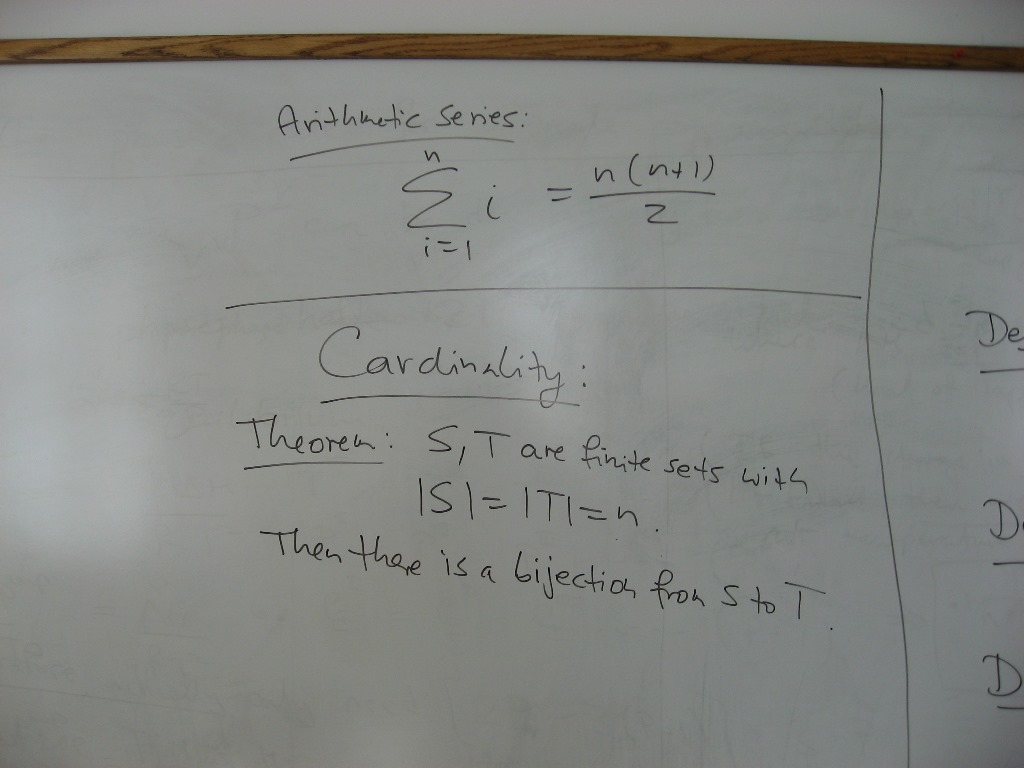 Arithmetic series:
n
∑ i = n(n+1)/2
i=1
Cardinality:
Theorem: S, T are finite sets with
|S| = |T| = n.
Then there is a bijection from S to T.